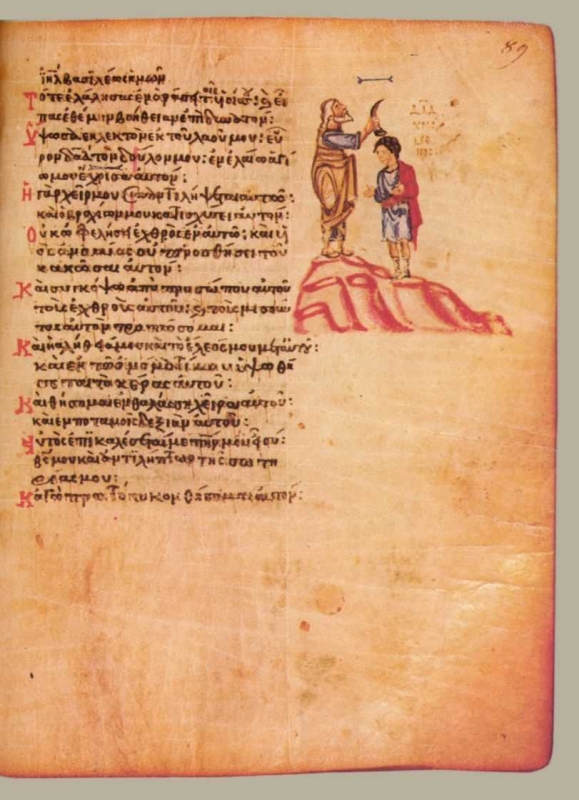 ϊηλ βασιλέως ημων
Τότε ελάλησας εν οράσει τοις υιοις σου· και ει
πας εθέμην βοήθειαν επι δυνατον:
Υψωσα εκλεκτον εκ του λαου μου: ευ
ρον δαδ τον δουλον μου: εν ελαίω αγι
ω μου έχρισα αυτον:
Η γαρ χειρ μου συναντιλήψεται αυτω:
και ο βραχίων μου κατισχύσει αυτον:
Ουκ ωφελήσει εχθρος εν αυτω: και υι
ος ανομίας ου προσθήσει του
κακωσαι αυτον:
Και συγκόψω απο προσώπου αυτου
τους εχθρους αυτου: και τους μισουν
τας αυτον τροπώσομαι:
Και η αλήθεια μου και το έλεος μου μετ αυτου:
και εν τω ονοματι μου υψωθή
σεται το κέρας αυτου:
Και θήσομαι εν θαλάσση χειρα αυτου:
και εν ποταμοις δεξιαν αυτου:
Αυτος επικαλέσεται με πηρ μου ει συ:
θς μου και αντιλήπτωρ της σωτη
ριας μου:
Καγω πρωτότοκον θήσομαι αυτον:
89